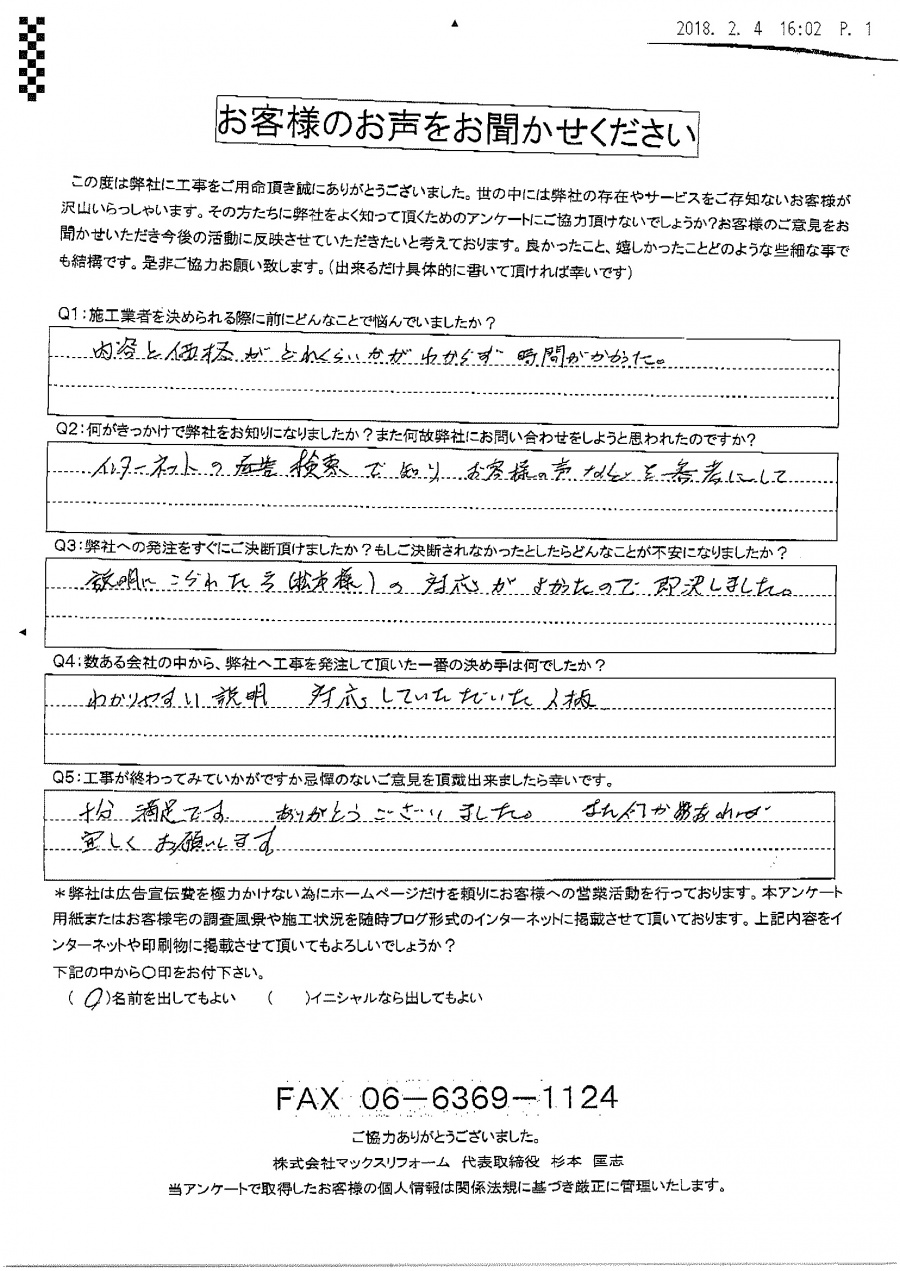 2018. 2. 4 16:02 P. 1
お客様のお声をお聞かせください
この度は弊社に工事をご用命頂き誠にありがとうございました。世の中には弊社の存在やサービスをご存知ないお客様が
沢山いらっしゃいます。その方たちに弊社をよく知って頂くためのアンケートにご協力頂けないでしょうか?お客様のご意見をお
聞かせいただき今後の活動に反映させていただきたいと考えております。良かったこと、嬉しかったことどのような些細な事で
も結構です。是非ご協力お願い致します。(出来るだけ具体的に書いて頂ければ幸いです)
Q1:施工業者を決められる際に前にどんなことで悩んでいましたか?
内容と価格がどれくらいかがわからず 時間がかかった。
Q2:何がきっかけで弊社をお知りになりましたか?また何故弊社にお問い合わせをしようと思われたのですか?
インターネットの広告 検索で知り、お客様の声などを参考にして
Q3:弊社への発注をすぐにご決断頂けましたか?もしご決断されなかったとしたらどんなことが不安になりましたか?
説明に こられた方( 様)の 対応がよかったので 即決しました。
Q4:数ある会社の中から、弊社へ工事を発注して頂いた一番の決め手は何でしたか?
わかりやすい説明 対応していただいた人柄
Q5:工事が終わってみていかがですか忌憚のないご意見を頂戴出来ましたら幸いです。
十分 満足です ありがとうございました。 また何か あれば
宜しくお願いします
*弊社は広告宣伝費を極力かけない為にホームページだけを頼りにお客様への営業活動を行っております。本アンケート
用紙またはお客様宅の調査風景や施工状況を随時ブログ形式のインターネットに掲載させて頂いております。上記内容をイ
ンターネットや印刷物に掲載させて頂いてもよろしいでしょうか?
下記の中から○印をお付下さい。
(○)名前を出してもよい ( )イニシャルなら出してもよい
FAX 06-6369-1124
ご協力ありがとうございました。
株式会社マックスリフォーム 代表取締役 杉本 匡志
当アンケートで取得したお客様の個人情報は関係法規に基づき厳正に管理いたします。